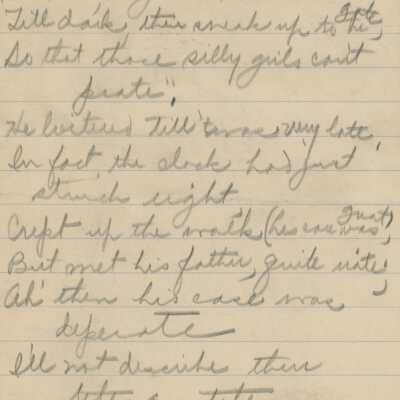 Till dark, then sneak up to the gate,
So that those silly girls can't
prate".
He loitered Till 'twas very late,
In fact, the clock had just
struck eight,
Crept up the walk, (his case was great)
But met his father, quite irate;
Ah! then his case was
desperate
I'll not describe their
tete a tete